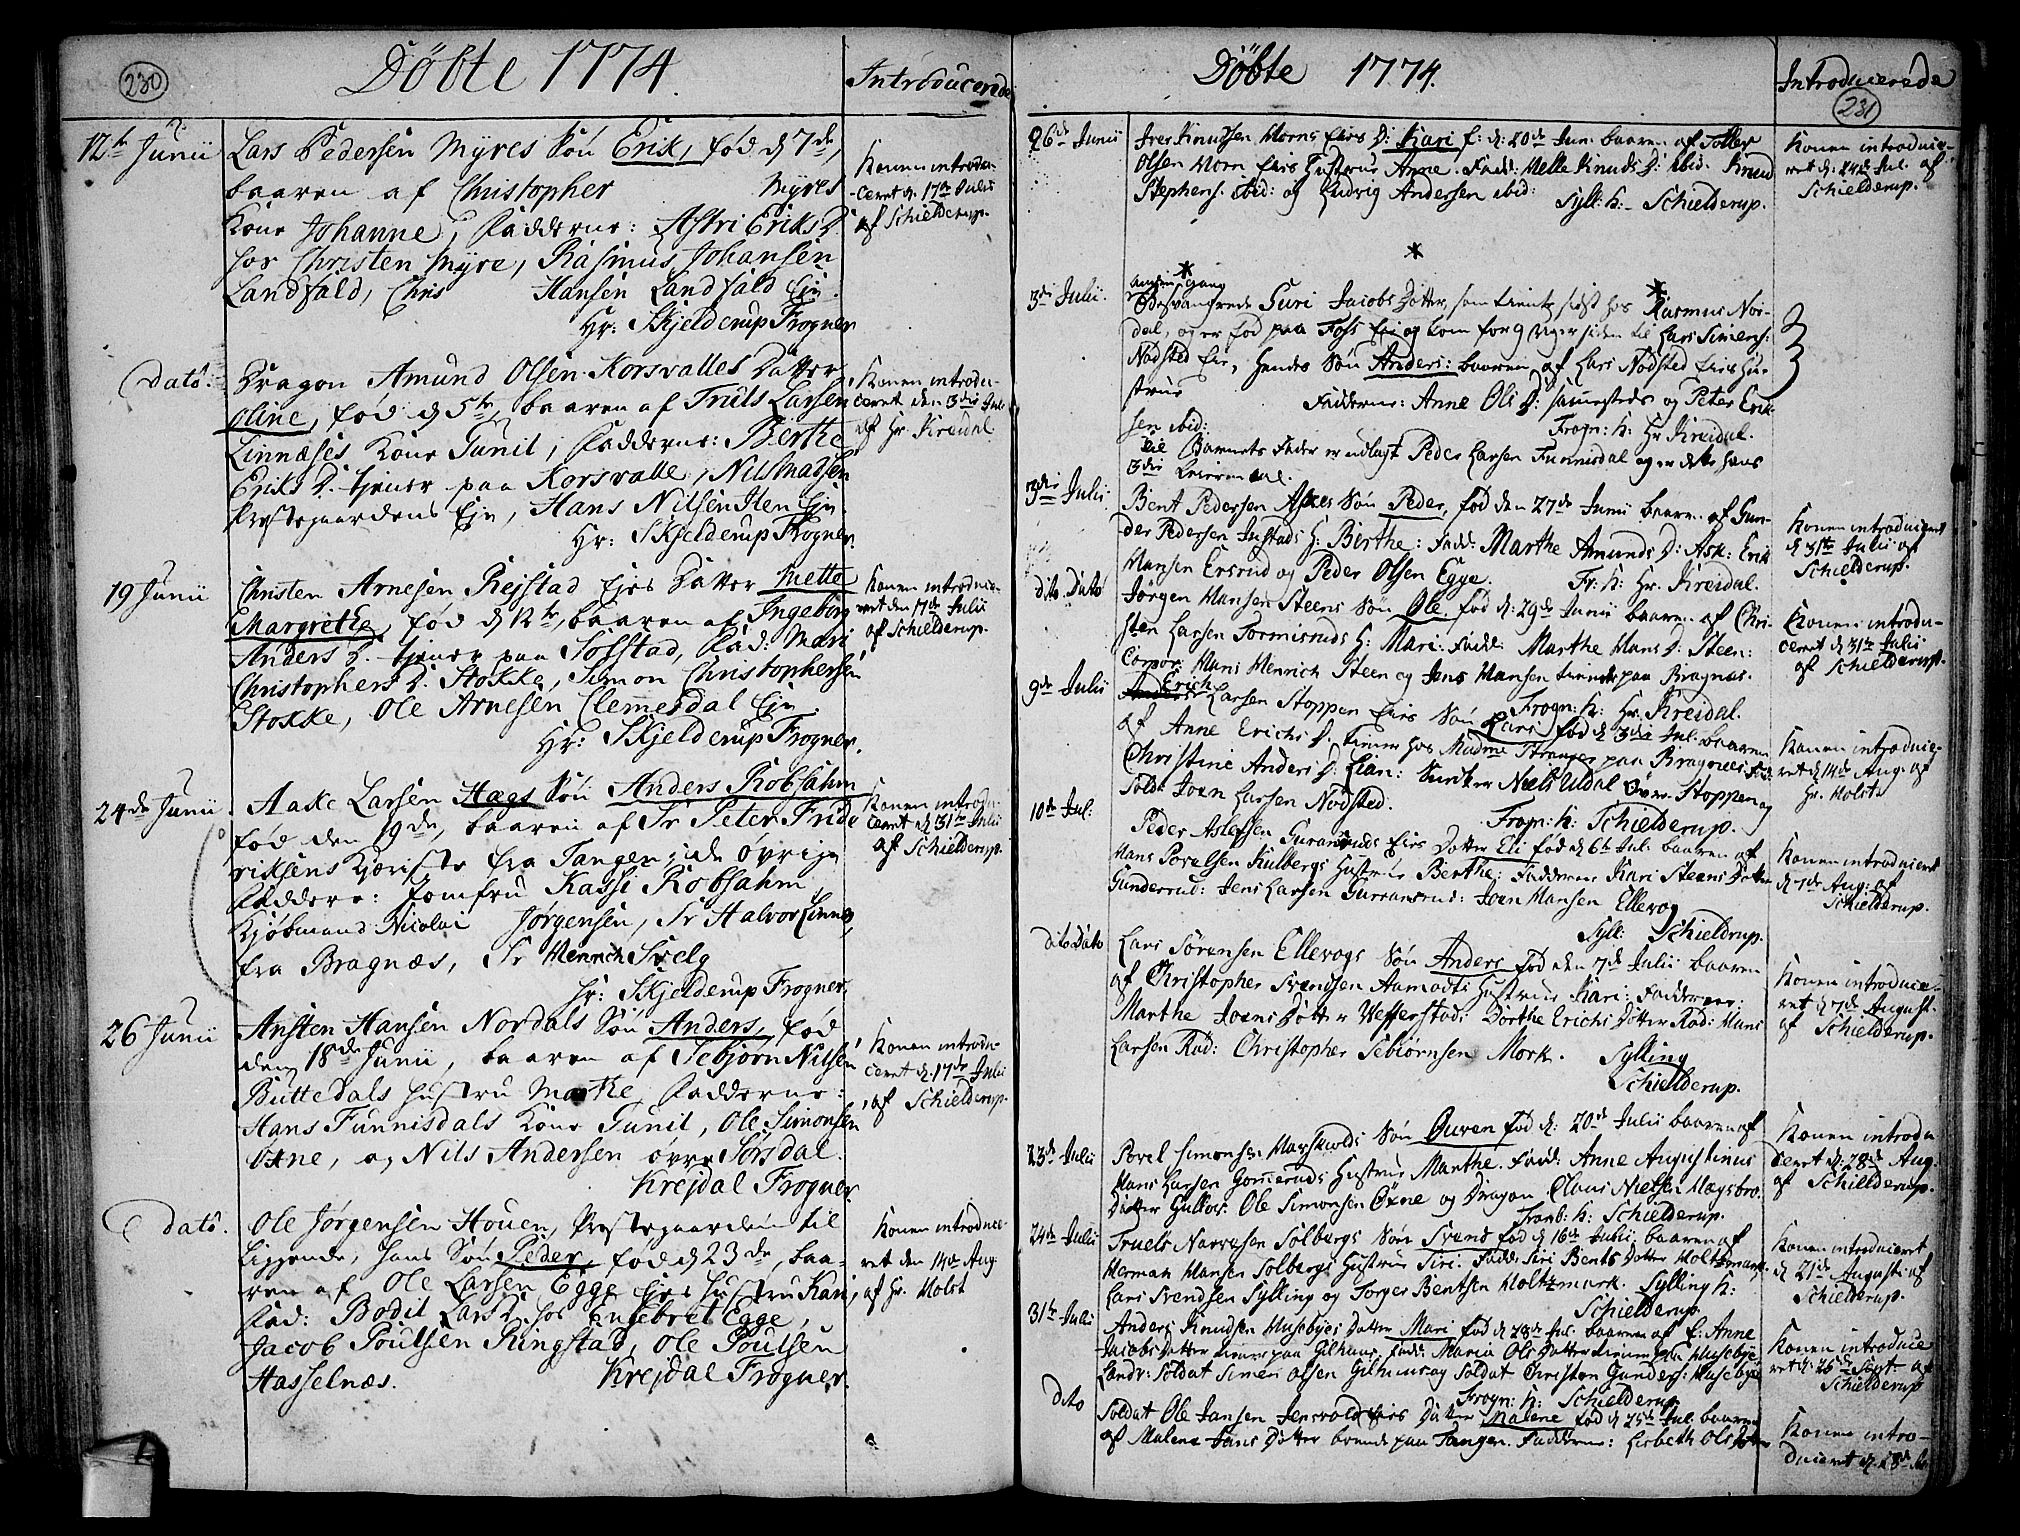 230
Döbte 1774.
Introducerede
12te Junii
Lars Pedersen Myres Sön Erik, föd d 7de,
baaren af Christopher Myres
Kone Johanne, Fadderne: Astri Eriks D.
hos Christen Myre, Rasmus Johansen
Landfald, Chris Hansen Landfald Eje.
Hr: Skjelderup Frogner
Konen introdu-
ceret d. 17de Julii
af Schielderup.
Dato.
Dragon Amund Olsen Korsvalles Datter
Oline, föd d 5te, baaren af Truls Larsen
Linnæses Kone Gunil, Fadderne: Berthe
Eriks D. tjener paa Korsvalle, Nils Madsen
Præstegaardens Eje, Hans Nilsen Hen Eje
Hr: Skjelderup Frogner.
Konen introdu-
ceret den 3die Juli
af Hr Kreidal
19 Junii
Christen Arnesen Rejstad Ejes Datter Mette
Margrethe, föd d 12te, baaren af Ingebor
Anders D. tjener paa Solstad, Fad: Mari
Christophers D. Stokke, Simon Christophersen
Stokke, Ole Arnesen Clemesdal Eje.
Hr: Skjelderup Frogner.
Konen introducie-
ret den 17de Julii
af Schielderup.
24de Junii.
Aake Larsen Haegs Sön Anders Robsahm
föd den 19de, baaren af Sr Peter Fride
riksens Kjæriste fra Tangen; de övrige
Faddere: Jomfru Kassi Robsahm,
Kjöbmand Nicolai Jörgensen, Sr Halvor Linnes,
fra Bragnæs, Sr Henrich Svelg
Hr: Skjelderup Frogner.
Konen introdu-
ceret d. 31te Julii
af Schielderup.
26 Junii
Ansten Hansen Nordals Sön Anders, föd
den 18de Junii, baaren af Sebjörn Nilsen
Buttedals Hustru Marthe, Fadderne:
Hans Funnisdals Kone Gunil, Ole Simonsen
Oxne, og Nils Andersen övre Sörsdal.
Krejdal Frogner
Konen introdu-
ceret d. 17de Julii
af Schielderup.
Dato.
Ole Jörgensen Houen, Præstegaarden til
liggende, hans Sön Peder, föd d 23de, baa-
ren af Ole Larsen Egge Ejes Hustru Kari,
Fad: Bodil Lars D. hos Engebret Egge,
Jacob Poulsen Ringstad, Ole Poulsen
Hasselnæs. Krejdal Frogner.
Konen introducie-
ret den 14de Aug.
af Hr. Holst
Döbte 1774.
Introducierede
231
26de Junii
Iver Knudsen Horns Eies D: Kari f: d: 20de Jun. baaren af Toller
Olsen Horn Eies Hustrue Anne. Fadd: Helle Knuds D: ibid: Knud
Stephens. ibid: og Ludvig Andersen ibid: Syll: h: Schielderup.
Konen introducie-
ret d. 24de Jul. af
Schielderup.
3die Julii.
anden gang
Besvangrede Guri Jacobs Dotter, som tiente sidst hos Rasmus Nor-
dal, og er föd paa Foss Eie og kom for 9 Uger siden til Lars Simens:
Nödsted Eie, hendes Sön Anders: baaren af Lars Nödsted Eies Hu-
strue Fadderne: Anne Ols D: sammesteds og Peter Erik-
sen ibid: Frogn: h: Hr Kreidal.
Til Barnets Fader er udlagt Peder Larsen Funnisdal og er dette hans
3die Leiermaal.
3die Julii
Bent Pedersen Askes Sön Peder, föd den 27de Junii baaren af Gun-
der Pedersen Justads H: Berthe: Fadd: Marthe Amunds D: Ask: Erik
Hansen Ersrud og Peder Olsen Egge. Fr: h: Hr. Kreidal.
Konen introducieret
d 31te Julii af
Schielderup.
dito Dato
Jörgen Hansen Steens Sön Ole, föd d: 29de Junii baaren af Chri-
sten Larsen Tormisruds H: Mari: Fadd: Marthe Hans D: Steen:
Corpor: Hans Henrich Steen og Jens Hansen tienende paa Bragnæs.
Frogn: h: Hr. Kreidal.
Konen introdu-
ceret d. 31te Julii
af Schielderup.
9de Julii
Anders Erich Larsen Stoppen Eies Sön Lars föd d 3die Jul. baaren
af Anne Erichs D. tiener hos Madme Stranger paa Bragnæs: Fad:
Christine Anders D: Lian: Snedker Niels Udal Over-Stoppen og
Sold: Joen Larsen Nödsted. Frogn: h: Schielderup.
Konen introducie-
ret d 14de Aug. af
Hr. Holst.
10de Jul:
Peder Aslefsen Guranruds Eies Datter Eli föd d 6te Jul. baaren af
Hans Povelsen Kulbergs Hustrue Berthe: Fadderne Kari Steens Dotter
Gunderrud: Jens Larsen Gurranrud: Joen Hansen Ellevog
Syll: Schieldrup.
Konen introducieret
d 7de Aug: af
Schielderup.
dito Dato
Lars Sörensen Ellevogs Sön Anders föd den 7de Julii baaren
af Christopher Svendsen Aamodts Hustrue Kari: Fadderne:
Marthe Joens Dotter Vefferstad: Dorthe Erichs Dotter Röd: Hans
Larsen Röd: Christopher Sebiörnsen Mork. Sylling
Schielderup.
Konen introducie-
ret d. 7de August.
af Schielderup.
23de Julii
Povel Simonsen Harskolds Sön Ouven föd d: 20de Julii baaren af
Hans Larsen Gommeruds Hustrue Marthe. Fadd: Anne Augustinus
Dotter Gultor: Ole Simonsen Oxne og Dragon Claus Nielsen Hagsbro.
Tranb: h: Schielderup.
Konen introdu
ceret d: 28de Aug:
af Schielderup.
24de Julii
Truels Narvesen Solbergs Sön Svend föd d 16de Julii baaren af
Herman Hansen Solbergs Hustrue Siri: Fadd: Siri Bents Dotter Holtzmark.
Lars Svendsen Sylling og Torger Bentsen Holtzmark. Sylling h:
Schielderup.
Konen introducieret
d 21de Augusti af
Schielderup.
31te Julii
Anders Knudsen Husebyes Dotter Mari föd d 28de Jul. baaren af E: Anne
Jacobs Dotter tiener paa Gilhuus, Fadd: Maria Ols Dotter tiener paa Husebye
Landv: Soldat Simen Olsen Gilhuus og Soldat Christen Gunders: Husebye
Frogn: h: Schielderup.
Konen introducie
ret d: 25de Sept. af
Schielderup
dito
Soldat Ole Jansen Jensvold Eies Dotter Malene föd d 25de Jul: baaren
af Malene Jans Dotter boende paa Tangen. Fadderne: Lisbeth Ols Dotter
Konen intro-
ducieret d. 28de